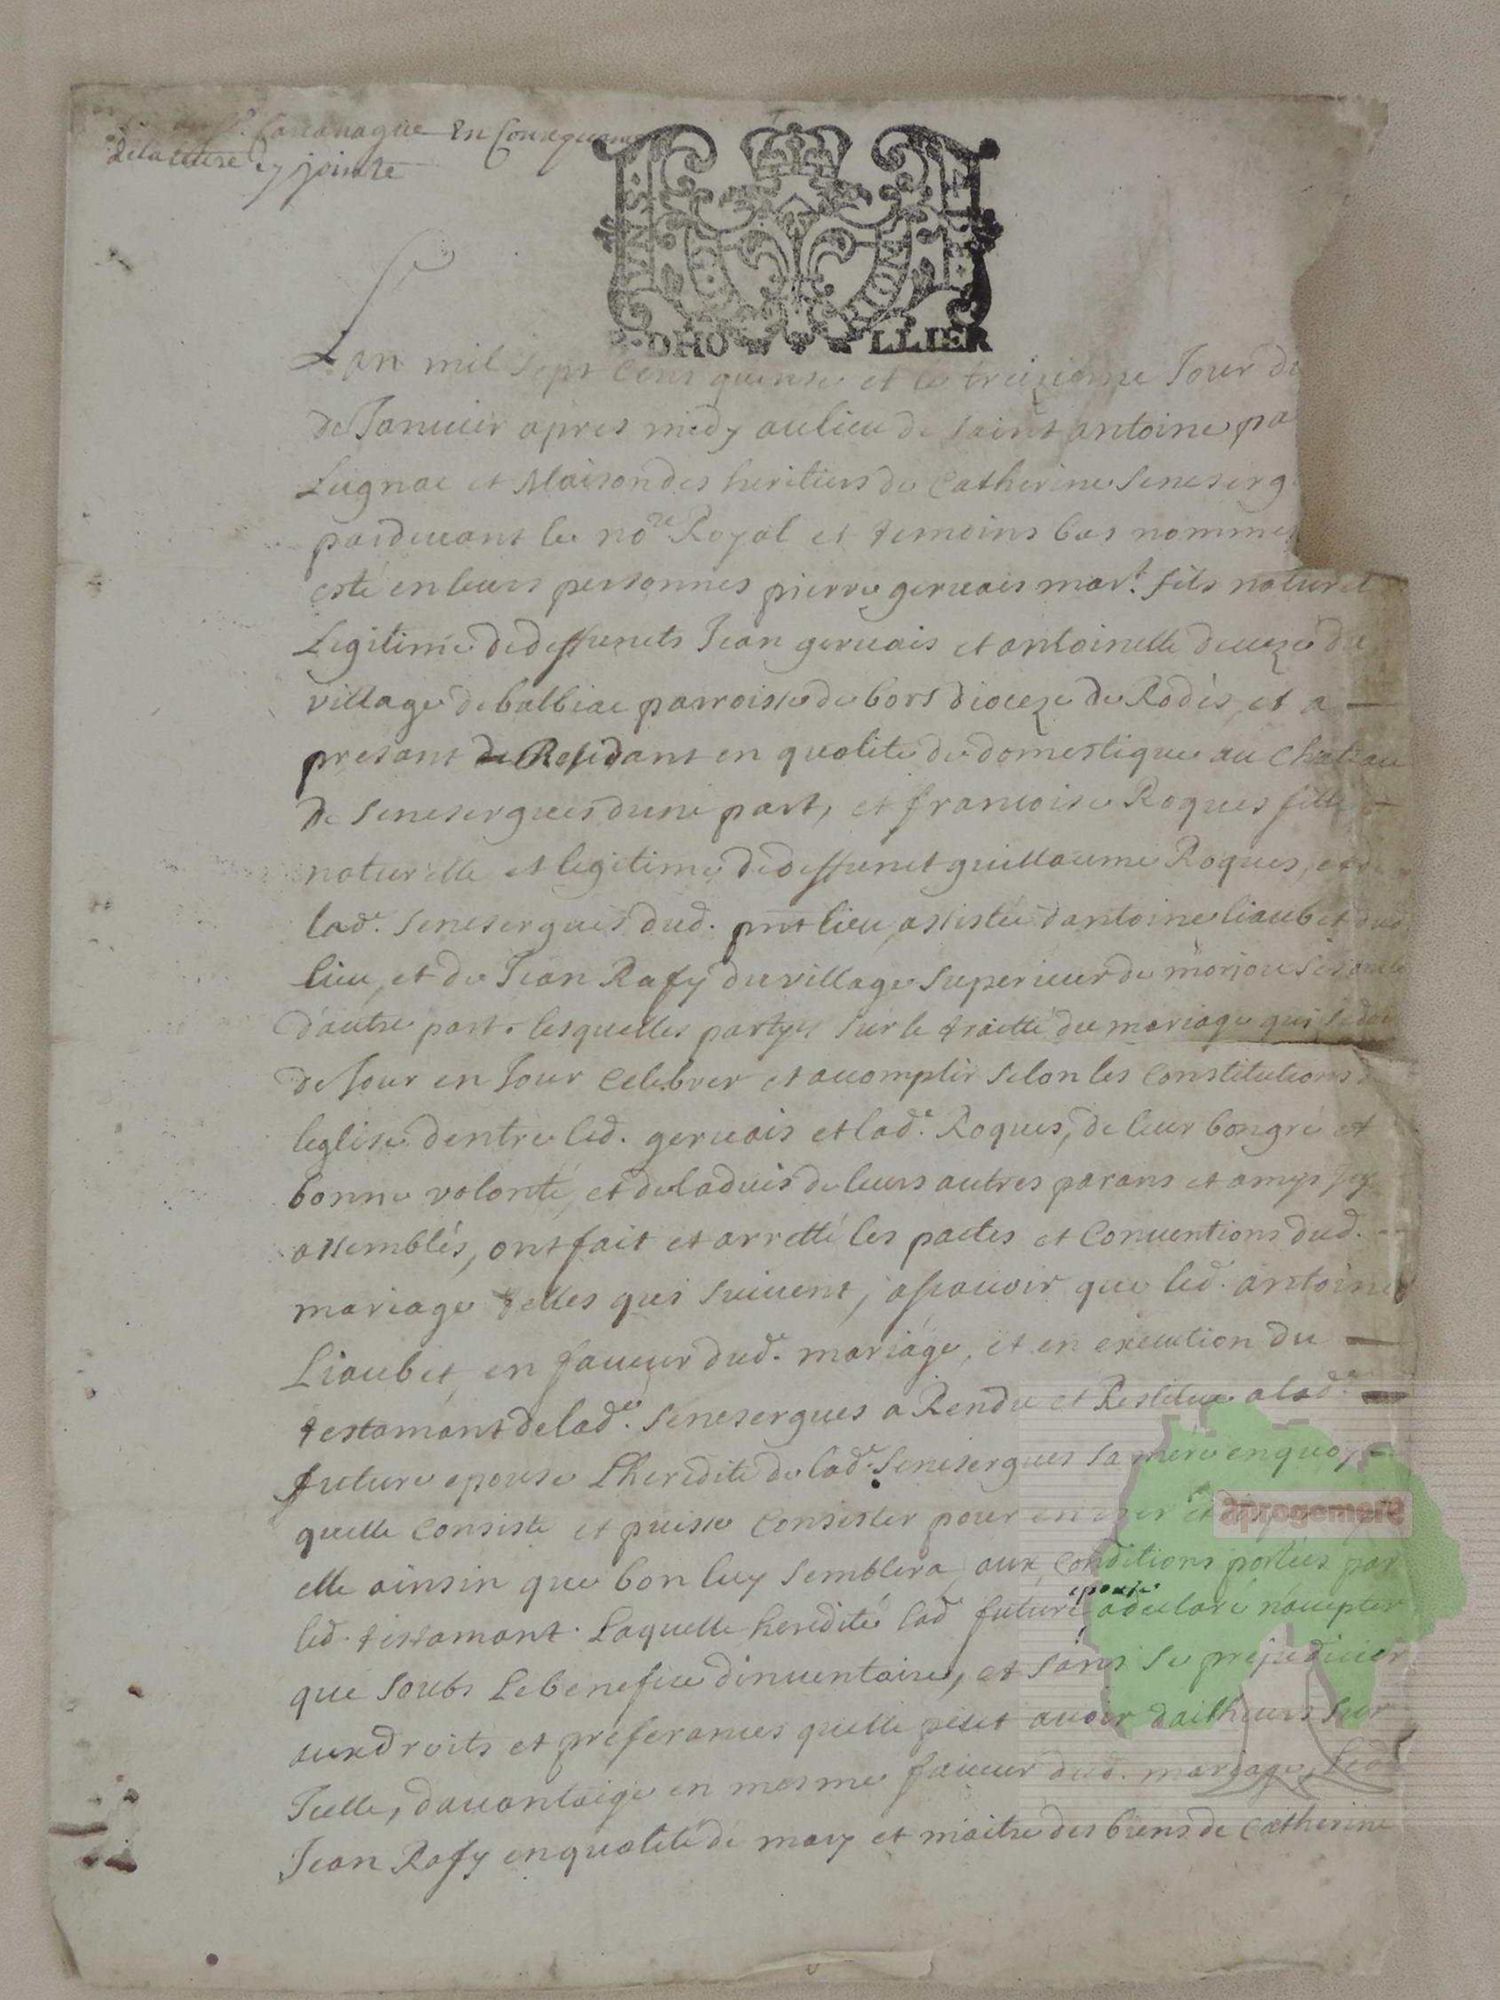 Cassanague En Consequance
de la lettre cy jointe
DHO LLIER
Lan mil sept Cens quinse et le treizieme Jour du
de Januier apres midy au lieu de saint antoine pa
Leignac et Maison des heritiers de Catherine Seneserg
pardeuant le nore Royal et temoins bas nommes
esté en leurs personnes pierre geruais mart. fils naturel
Legitime de deffuncts Jean geruais et antoinette deueze du
village de balbiac parroisse de bors dioceze de Rodés, et a
presant de Residant en qualité de domestique au Chateau
de Senesergues dune part, et francoise Roques fille
naturelle et legitime de deffunct guillaume Roques, et de
lade. Senesergues dud. pnt lieu, assistée dantoine liaubet dud
lieu, et de Jean Rafy du village superieur de morjou
dautre part. lesquelles partyes sur le traitté du mariage qui se doit
de Jour en Jour Celebrer et acomplir selon les Constitutions
leglise dentre led. geruais et lade. Roques, de leur bon gre et
bonne volonté, et de laduis de leurs autres parans et amys icy
assemblés, ont fait et arretté les pactes et Conuentions dud.
mariage telles qui suiuent, ascauoir que led. antoine
Liaubet, en faueur dud. mariage, et en execution du
testamant de lade. Senesergues a Rendu et Restitue a lade.
future epouse Lheredité de lade. Senesergues sa mere en quoy
quelle Consiste et puisse Consister pour en user et
elle ainsin que bon luy semblera, aux Conditions portées par
led. testamant. Laquelle heredité lad future epouse a declaré n'accepter
que soubs Le benefice dinuentaire, et sans se prejudicier
aux droits et preferances quelle peut auoir dailheurs sur
Jcelle, dauantaige en mesme faueur dud. mariage, led
Jean Rafy en qualité de mary et maitre des biens de Catherine
Stemoegorq2